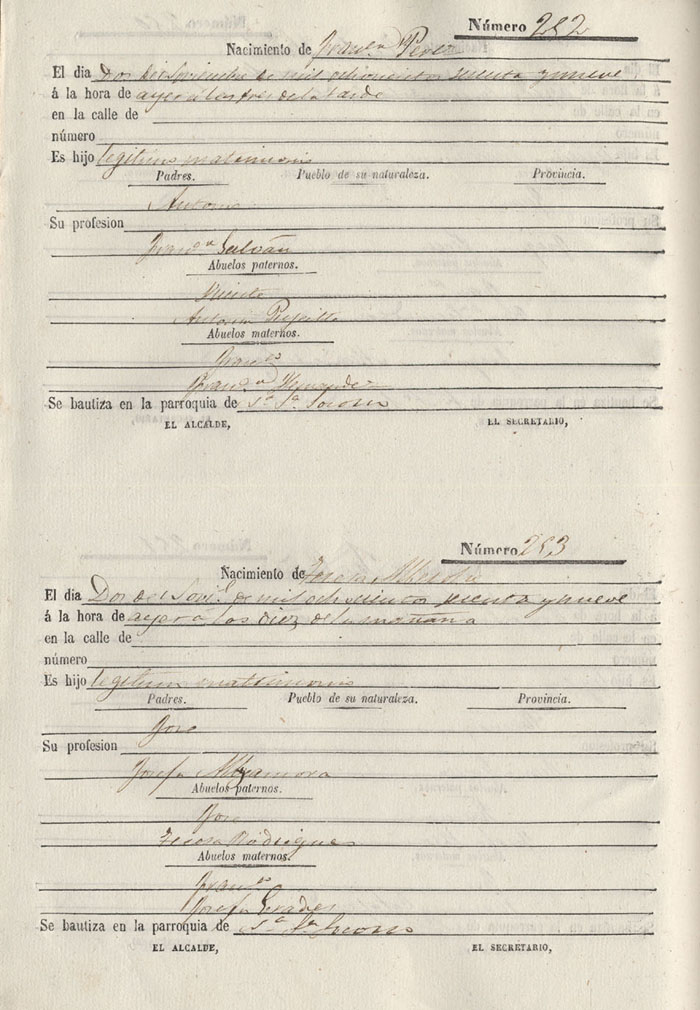 Número 252
Nacimiento de Franca Perez
El dia Dos de Noviembre de mil ochocientos sesenta y nueve
á la hora de ayer a las tres de la tarde
en la calle de
número
Es hijo legitimo matrimonio
Padres. Pueblo de su naturaleza. Provincia.
Antonio
Su profesion
Franca Galván
Abuelos paternos.
Vicente
Antonia
Abuelos maternos.
Franco
Franca Hernandez
Se bautiza en la parroquia de Sta Sa Socorro
EL ALCALDE, EL SECRETARIO,
Número 253
Nacimiento de Teresa
El dia Dos de Novie de mil ochociento sesenta y nueve
á la hora de ayer a las diez de la mañana
en la calle de
número
Es hijo legitimo matrimonio
Padres. Pueblo de su naturaleza. Provincia.
Jose
Su profesion
Josefa
Abuelos paternos.
Jose
Teresa Rodrigues
Abuelos maternos.
Franco
Josefa
Se bautiza en la parroquia de Sta Sa Socorro
EL ALCALDE, EL SECRETARIO,